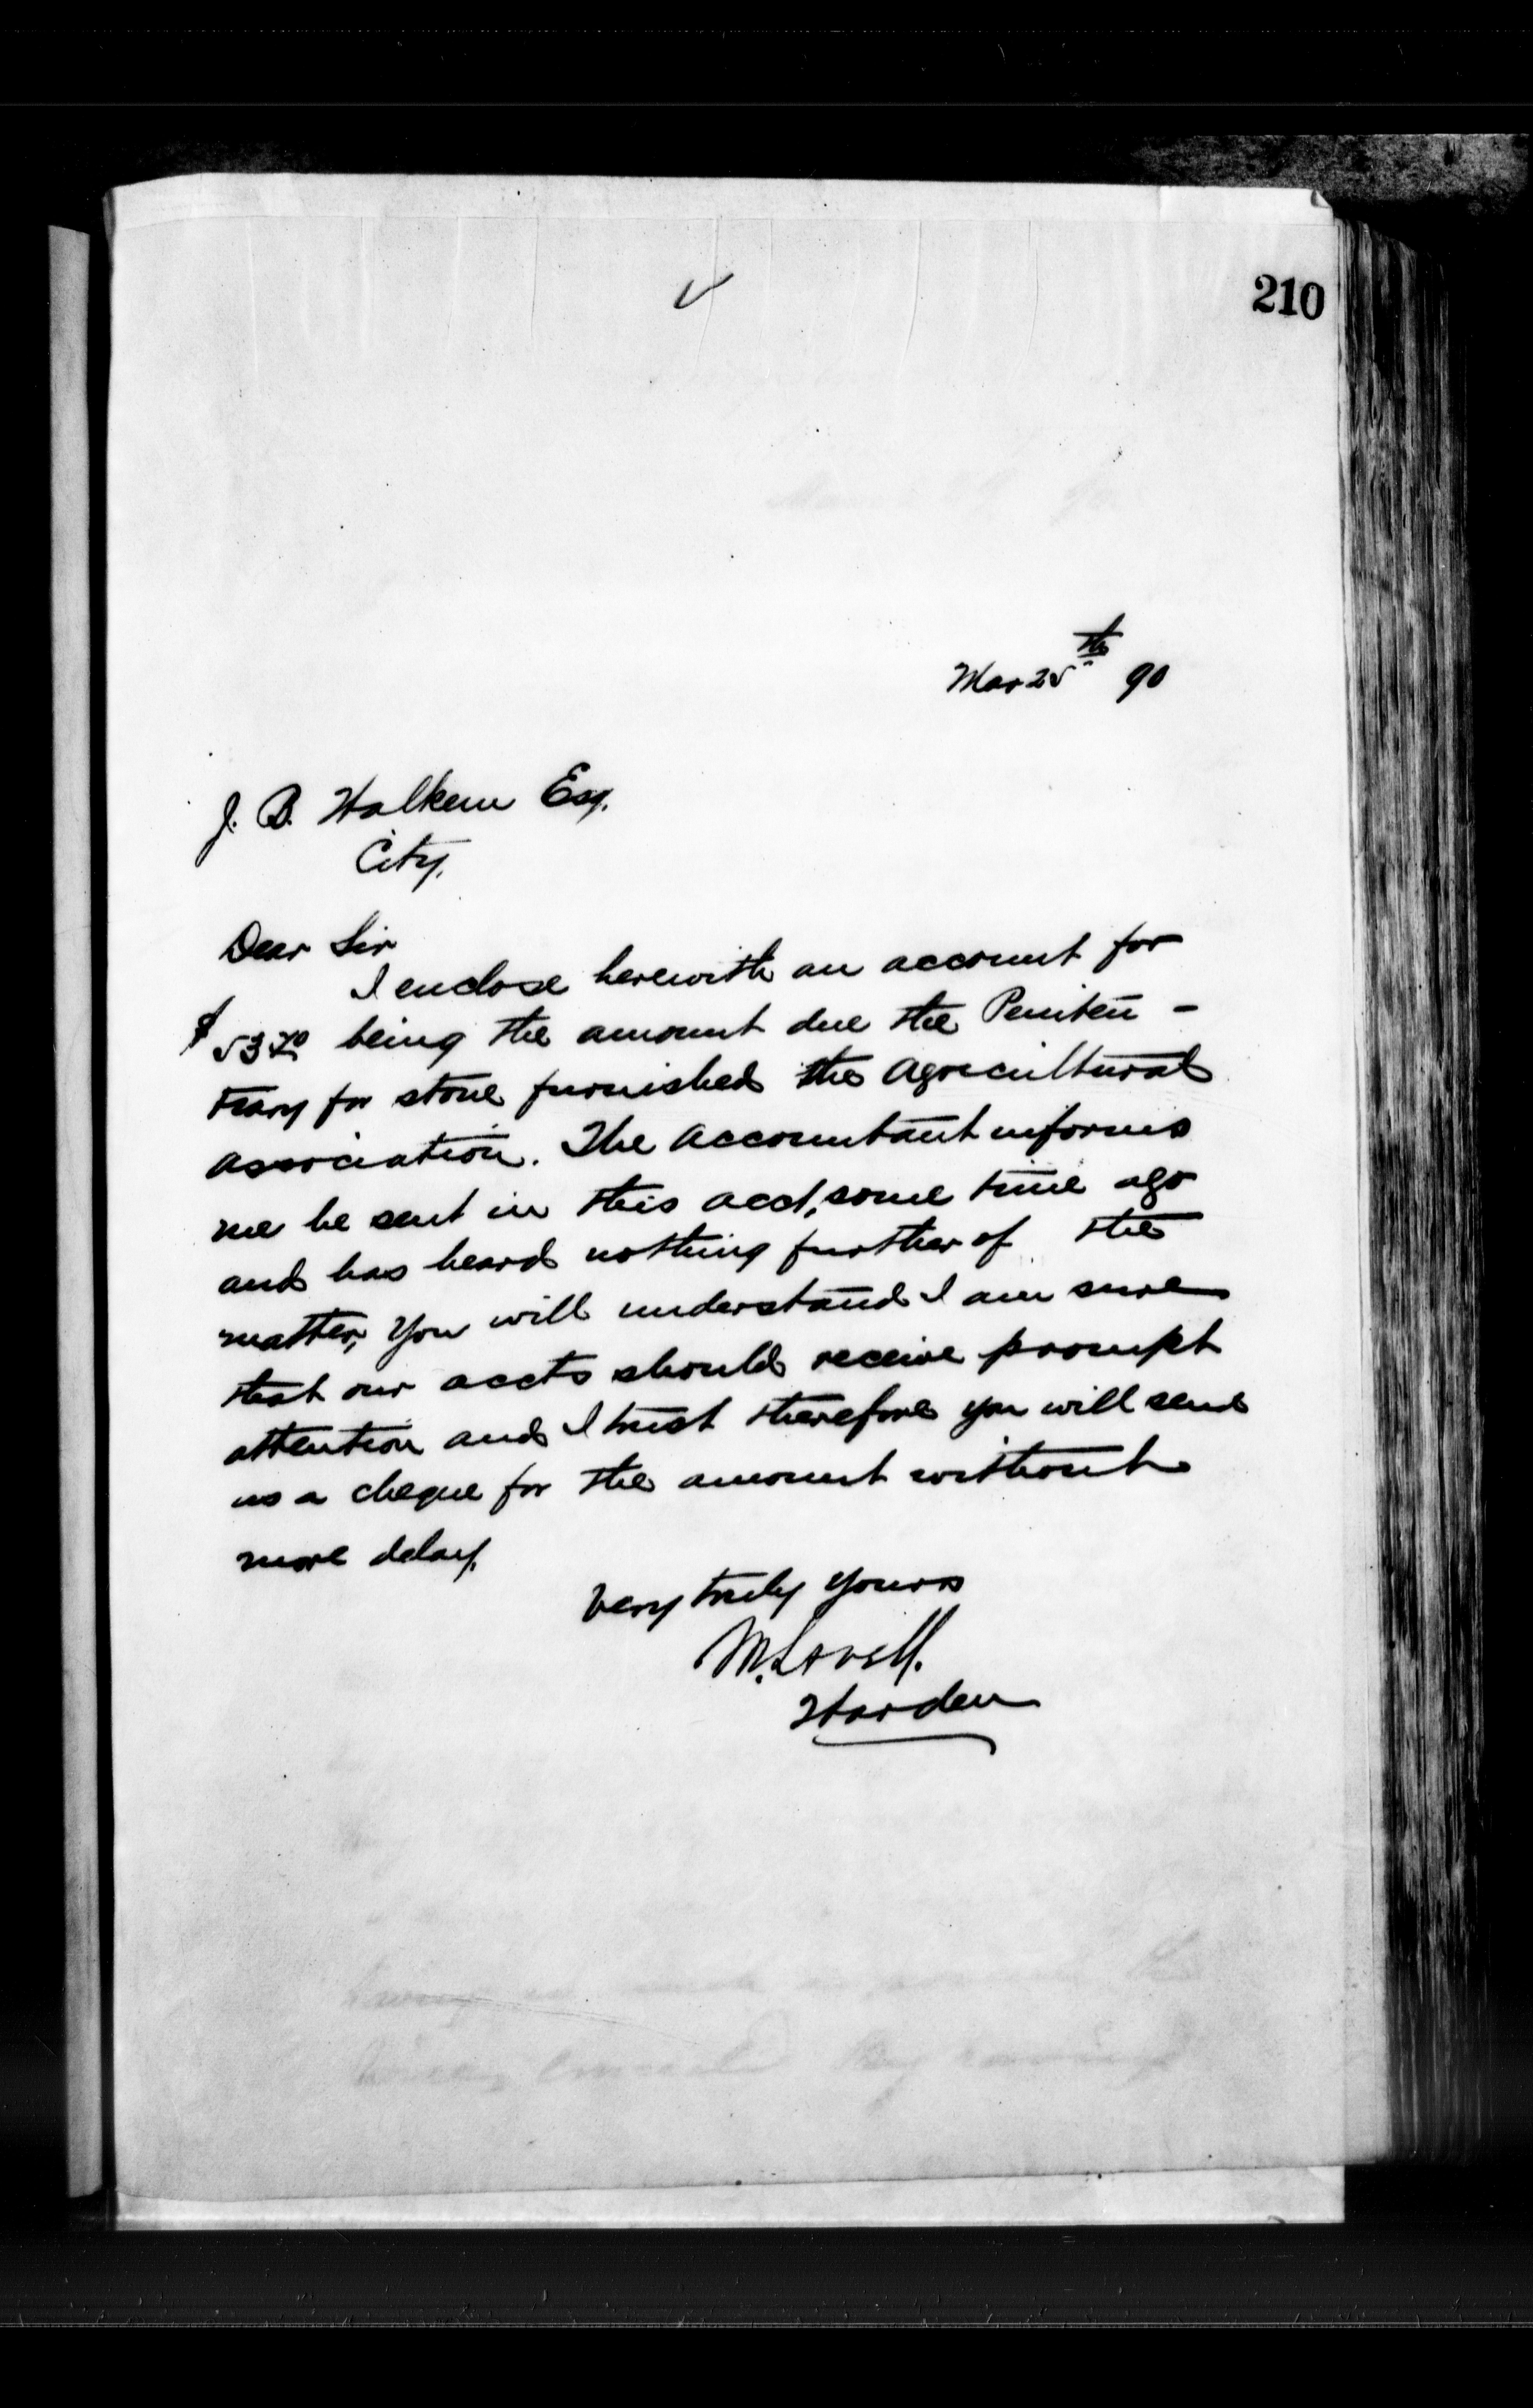 210
Mar 25th 90
J. B. Walkem Esq.
City.
Dear Sir
I enclose herewith an account for
$53.70 being the amount due the Peniten-
tiary for stone furnished the Agricultural
Association. The Accountant informs
me he sent in this acct, some time ago
and has heard nothing further of the
matter, You will understand I am sure
that our accts should receive prompt
attention and I trust therefore you will send
us a cheque for the amount without
more delay.
Very truly yours
M. Lavell.
Warden